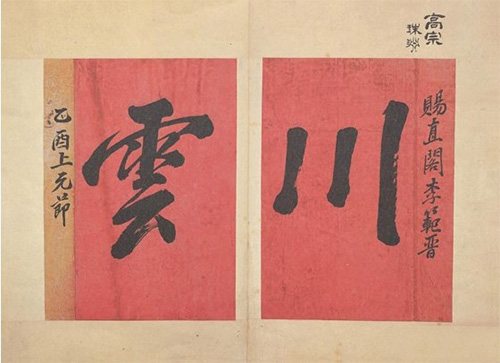 高宗
珠淵
賜直閣李範晋
川
雲
乙酉上元節